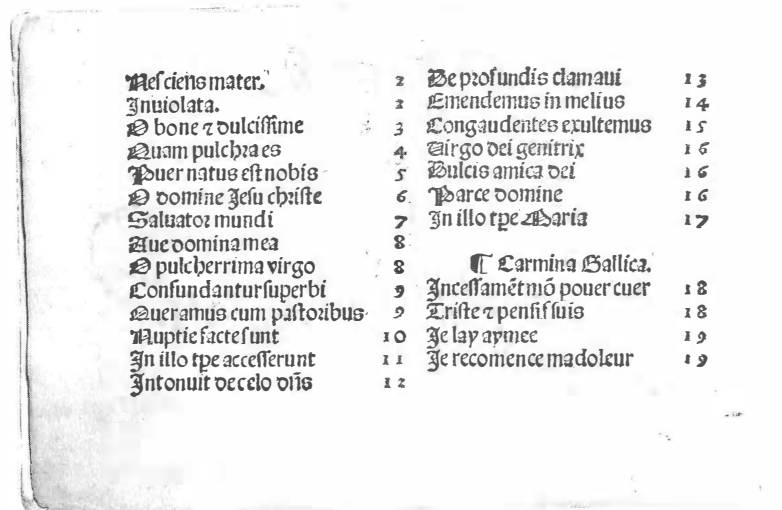 Nesciens mater. 2
Inuiolata. 2
O bone ⁊ dulcissime 3
Quam pulchra es 4
Puer natus est nobis 5
O domine Jesu christe 6
Saluator mundi 7
Aue domina mea 8
O pulcherrima virgo 8
Confundantur superbi 9
Queramus cum pastoribus 9
Nuptie facte sunt 10
In illo tp̄e accesserunt 11
Intonuit de celo dn̄s 12
De profundis clamaui 13
Emendemus in melius 14
Congaudentes exultemus 15
Virgo dei genitrix 16
Dulcis amica dei 16
Parce domine 16
In illo tp̄e Maria 17
¶ Carmina Gallica.
Incessamēt mō pouer cuer 18
Triste ⁊ pensif suis 18
Je lay aymee 19
Je recomence ma doleur 19